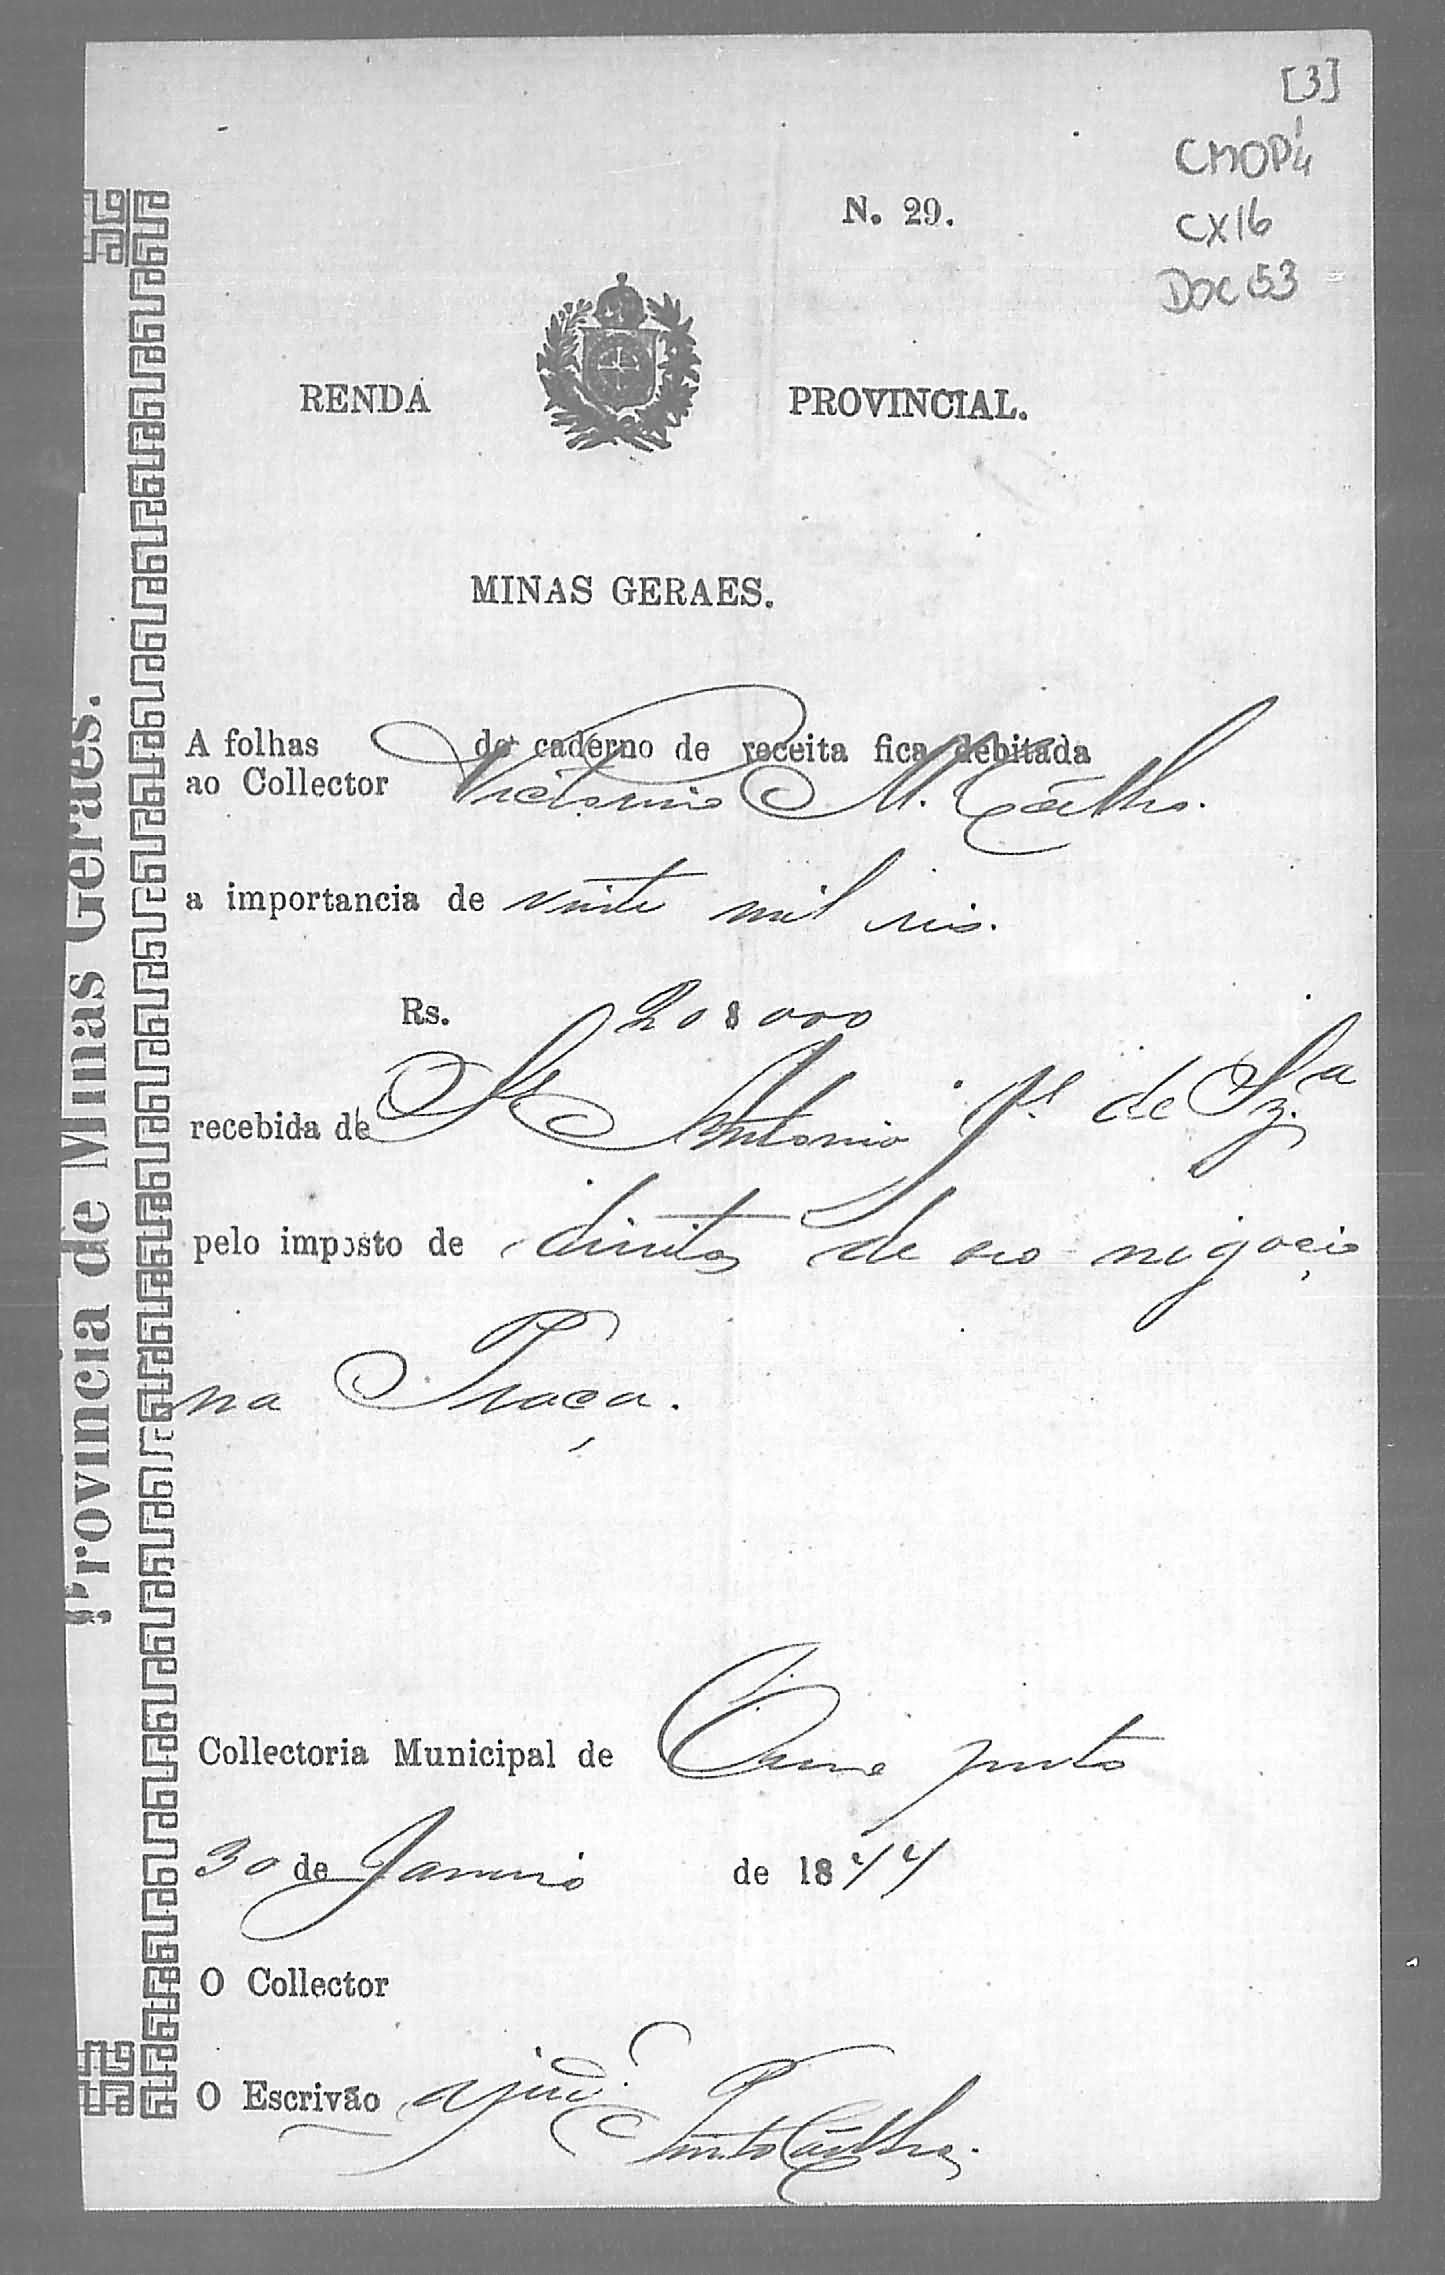 [3]
CMOP 1/4
CX16
DOC 53
N. 29.
RENDA PROVINCIAL.
MINAS GERAES.
Provincia de Minas Geraes.
A folhas do caderno de receita fica debitada
ao Collector Victorino M. Coêlho.
a importancia de vinte mil reis.
Rs. 20$000
recebida de Antonio de Sz.ª
pelo imposto de direitos de seo negocio
na Praça.
Collectoria Municipal de Ouro preto
30 de Janeiro de 18
O Collector
O Escrivão ajud.e Pinto Coêlho.